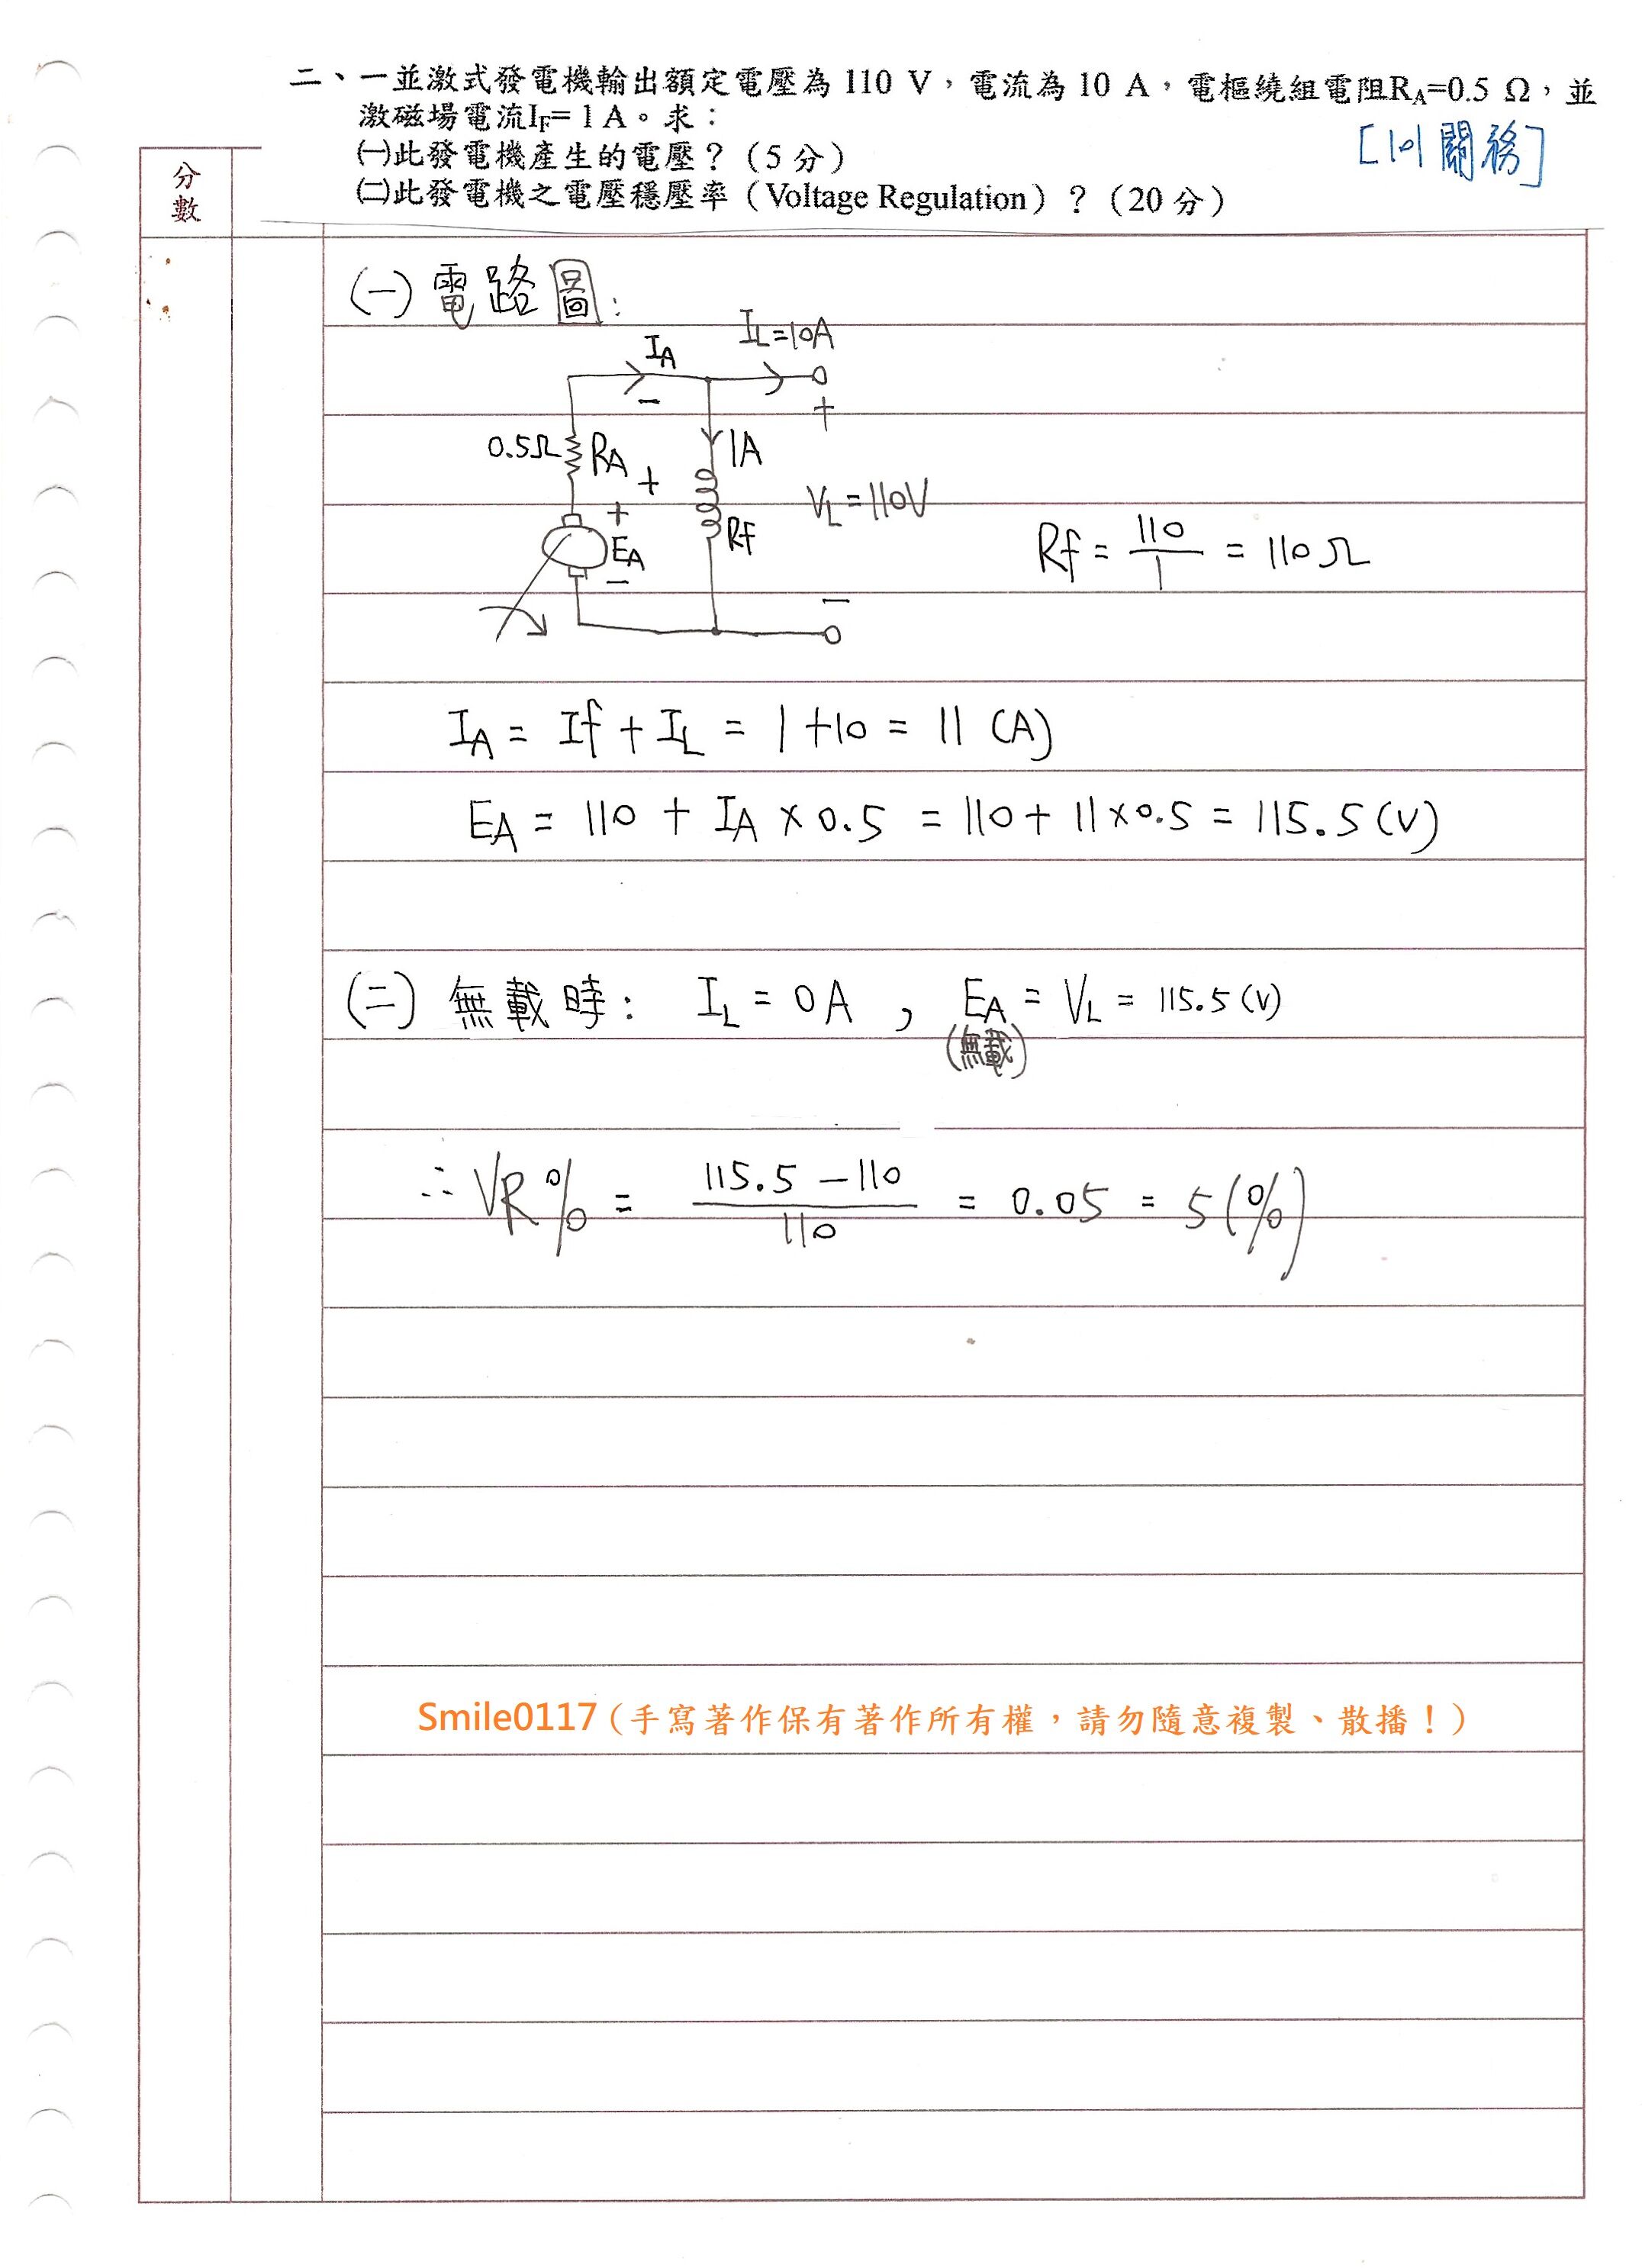 二、一並激式發電機輸出額定電壓為 110 V，電流為 10 A，電樞繞組電阻RA=0.5 Ω，並
激磁場電流IF= 1 A。求：
㈠此發電機產生的電壓？（5 分）
[101 關務]
㈡此發電機之電壓穩壓率（Voltage Regulation）？（20 分）
分數
(一) 電路圖:
IA
IL=10A
-
+
0.5Ω
RA
+
1A
+
VL=110V
EA
Rf
-
-
Rf = 110/1 = 110Ω
IA = If + IL = 1+10 = 11 (A)
EA = 110 + IA × 0.5 = 110 + 11×0.5 = 115.5 (V)
(二) 無載時: IL = 0A , EA = VL = 115.5 (V)
(無載)
∴ VR% = (115.5 - 110)/110 = 0.05 = 5 (%)
Smile0117（手寫著作保有著作所有權，請勿隨意複製、散播！）